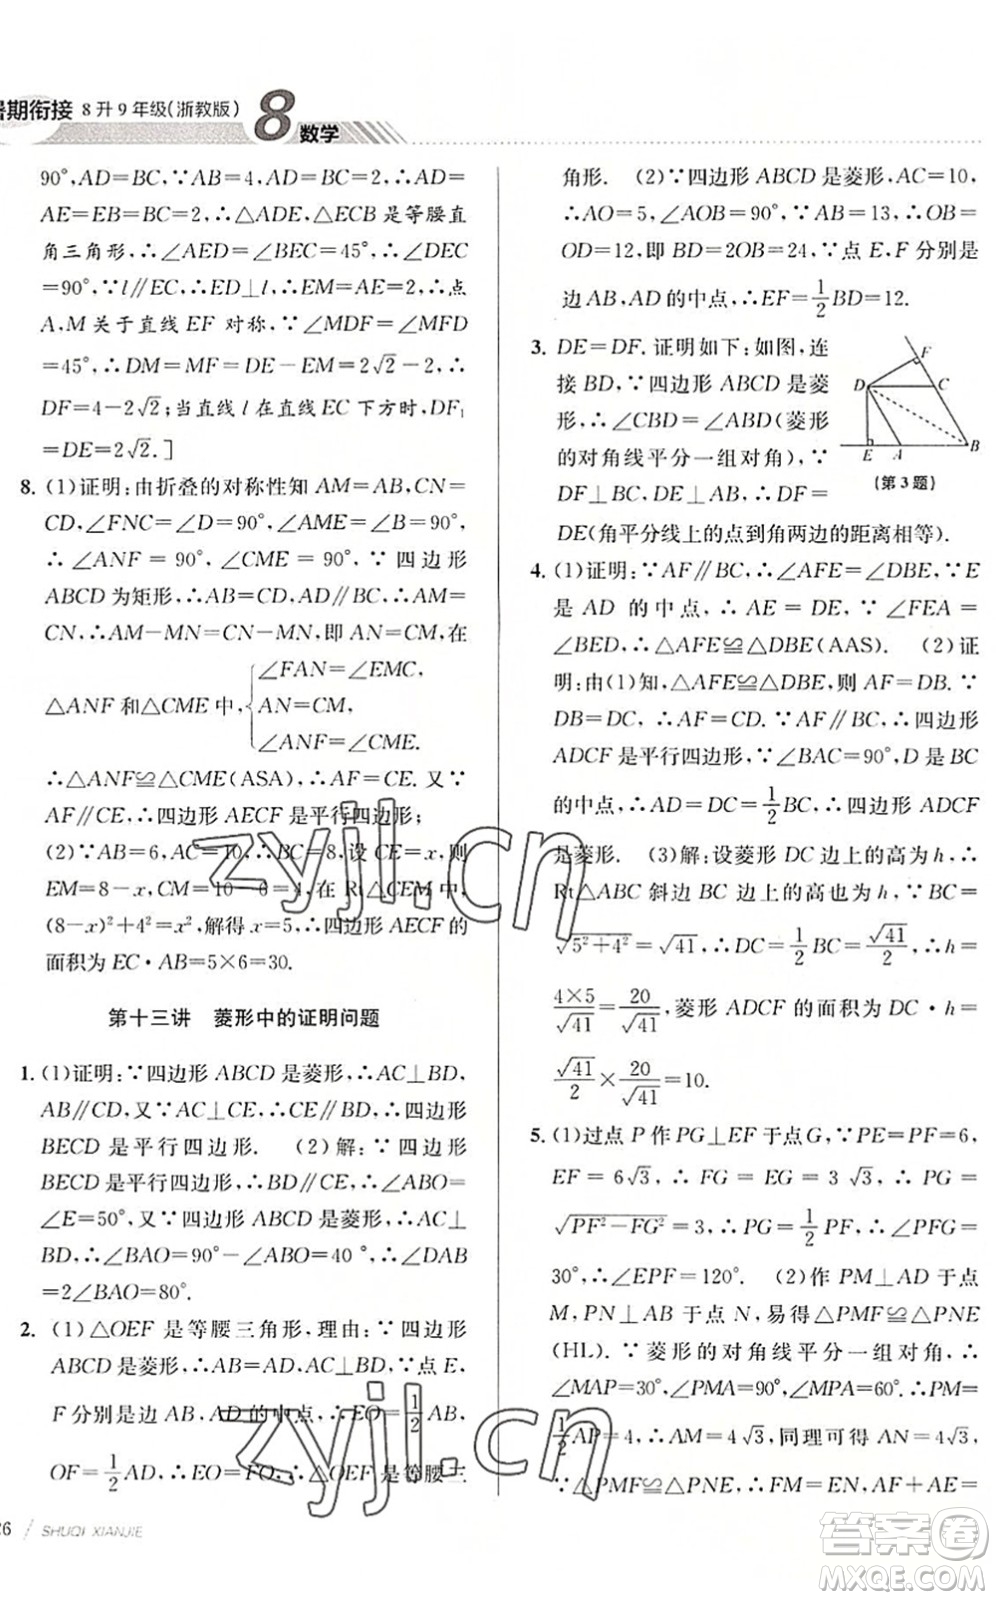 暑期衔接 8升9年级(浙教版) 8 数学
90°,AD=BC,∵AB=4,AD=BC=2,∴AD=
AE=EB=BC=2,∴△ADE,△ECB是等腰直
角三角形,∴∠AED=∠BEC=45°,∴∠DEC
=90°,∵l∥EC,∴ED⊥l,∴EM=AE=2,∴点
A,M关于直线EF对称,∵∠MDF=∠MFD
=45°,∴DM=MF=DE-EM=2√2-2,∴
DF=4-2√2;当直线l在直线EC下方时,DF₁
=DE=2√2.]
8. (1)证明:由折叠的对称性知AM=AB,CN=
CD,∠FNC=∠D=90°,∠AME=∠B=90°,
∴∠ANF=90°,∠CME=90°,∵四边形
ABCD为矩形,∴AB=CD,AD∥BC,∴AM=
CN,∴AM-MN=CN-MN,即AN=CM,在
△ANF和△CME中,{∠FAN=∠EMC,
AN=CM,
∠ANF=∠CME.
∴△ANF≌△CME(ASA),∴AF=CE.又∵
AF∥CE,∴四边形AECF是平行四边形;
(2)∵AB=6,AC=10,∴BC=8,设CE=x,则
EM=8-x,CM=10-6=4,在Rt△CEM中,
(8-x)²+4²=x²,解得x=5,∴四边形AECF的
面积为EC·AB=5×6=30.
第十三讲 菱形中的证明问题
1. (1)证明:∵四边形ABCD是菱形,∴AC⊥BD,
AB∥CD,又∵AC⊥CE,∴CE∥BD,∴四边形
BECD是平行四边形. (2)解:∵四边形
BECD是平行四边形,∴CE∥BD,∴∠ABO=
∠E=50°,又∵四边形ABCD是菱形,∴AC⊥
BD,∴∠BAO=90°-∠ABO=40°,∴∠DAB
=2∠BAO=80°.
2. (1)△OEF是等腰三角形,理由:∵四边形
ABCD是菱形,∴AB=AD,AC⊥BD,∵点E,
F分别是边AB,AD的中点,∴EO=1/2AB,
OF=1/2AD,∴EO=FO,∴△OEF是等腰三
角形. (2)∵四边形ABCD是菱形,AC=10,
∴AO=5,∠AOB=90°,∵AB=13,∴OB=
OD=12,即BD=2OB=24,∵点E,F分别是
边AB,AD的中点,∴EF=1/2BD=12.
3. DE=DF.证明如下:如图,连
接BD,∵四边形ABCD是菱
形,∴∠CBD=∠ABD(菱形
的对角线平分一组对角),∵
DF⊥BC,DE⊥AB,∴DF=
DE(角平分线上的点到角两边的距离相等).
F
D
C
E A B
(第3题)
4. (1)证明:∵AF∥BC,∴∠AFE=∠DBE,∵E
是AD的中点,∴AE=DE,∵∠FEA=
∠BED,∴△AFE≌△DBE(AAS). (2)证
明:由(1)知,△AFE≌△DBE,则AF=DB.∵
DB=DC,∴AF=CD.∵AF∥BC,∴四边形
ADCF是平行四边形,∵∠BAC=90°,D是BC
的中点,∴AD=DC=1/2BC,∴四边形ADCF
是菱形. (3)解:设菱形DC边上的高为h,∴
Rt△ABC斜边BC边上的高也为h,∵BC=
√(5²+4²)=√41,∴DC=1/2BC=√41/2,∴h=
4×5/√41=20/√41,∴菱形ADCF的面积为DC·h=
√41/2×20/√41=10.
5. (1)过点P作PG⊥EF于点G,∵PE=PF=6,
EF=6√3,∴FG=EG=3√3,∴PG=
√(PF²-FG²)=3,∴PG=1/2PF,∴∠PFG=
30°,∴∠EPF=120°. (2)作PM⊥AD于点
M,PN⊥AB于点N,易得△PMF≌△PNE
(HL).∵菱形的对角线平分一组对角,∴
∠MAP=30°,∠PMA=90°,∠MPA=60°.∴PM=
1/2AP=4,∴AM=4√3,同理可得AN=4√3,
∵△PMF≌△PNE,∴MF=EN,AF+AE=
26 / SHUQI XIANJIE
zyjl.cn
zyjl.cn
答案卷
MXQE.COM